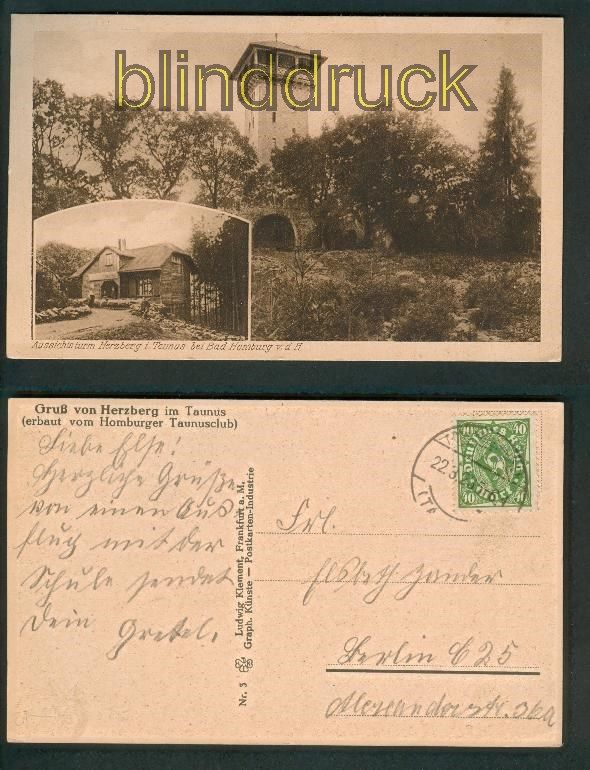 blinddruck
Aussichtsturm Herzberg i. Taunus bei Bad Homburg v. d. H.
Gruß von Herzberg im Taunus
(erbaut vom Homburger Taunusclub)
Liebe Else!
Herzliche Grüße
von einen Aus
flug mit der
Schule sendet
Dein Gretel.
Nr. 3
Ludwig Klement, Frankfurt a. M.
Graph. Künste — Postkarten-Industrie
40 Deutsches Reich 40
40 40
22.3
Frl.
Elsbeth Zander
Berlin C 25
Alexanderstr. 36a